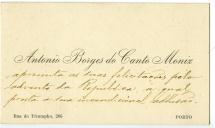 Antonio Borges do Canto Moniz
apresenta as suas felicitações pelo
advento da Republica, a qual
presta a sua incondicional adhesão.
Rua do Triumpho, 206 PORTO